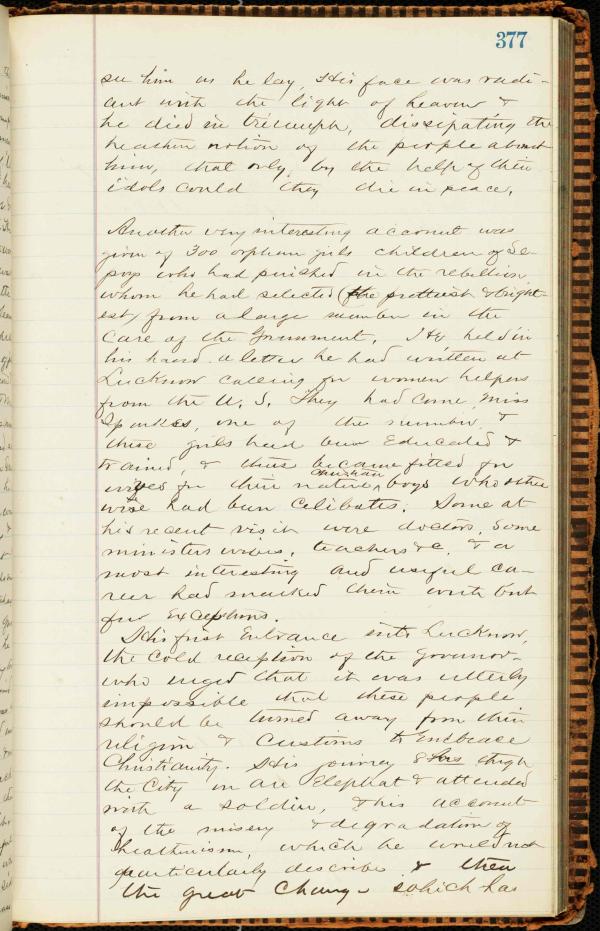 377
see him as he lay, His face was radi-
ant with the light of heaven &
he died in triumph, dissipating the
heathen notion of the people about
him, that only, by the help of their
idols could they die in peace.
Another very interesting account was
given of 300 orphan girls children of Se-
poys who had perished in the rebellion
whom he had selected (the prettiest & bright-
est) from a large number in the
care of the Government. He held in
his hand a letter he had written at
Lucknow calling for women helpers
from the U. S. They had come, Miss
Sparkes, one of the number, &
these girls had been Educated &
trained, & thus became fitted for
christian
wives for their native boys who other
wise had been Celibates. Some at
his recent visit were doctors, some
ministers wives, teachers &c. & a
most interesting and useful ca-
reer had marked them with but
few Exceptions.
His first Entrance into Lucknow,
the cold reception of the Governor-
who urged that it was utterly
impossible that these people
should be turned away from their
religion & Customs to Embrace
Christianity. His journey through
the City on an Elephat & attended
with a soldier, & his account
of the misery & degradation of
heathenism, which he would not
particularly describe & then
the great Change which has